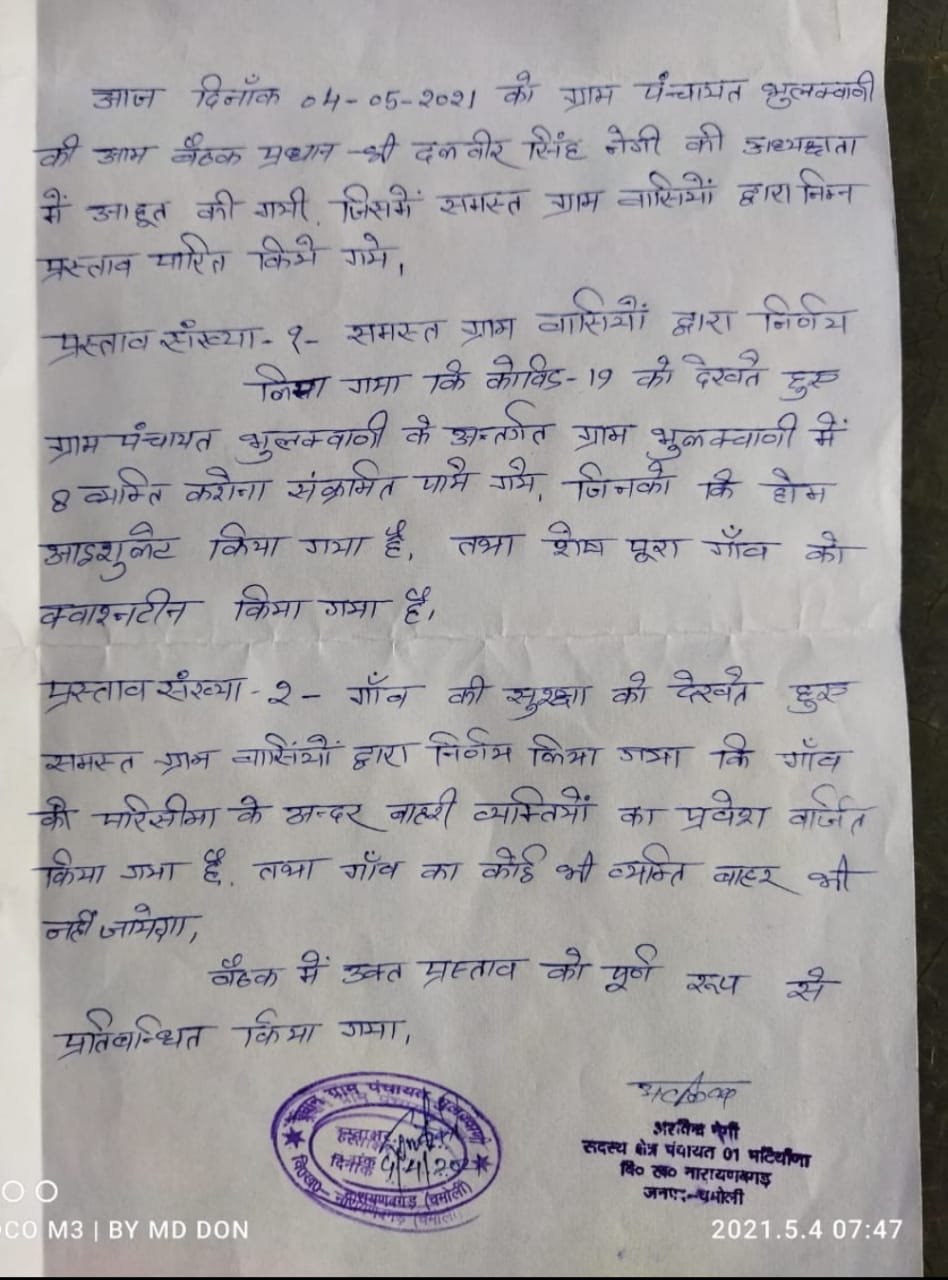 आज दिनाँक 04-05-2021 को ग्राम पंचायत भुलक्वाणी
की आम बैठक प्रधान श्री दलवीर सिंह नेगी की अध्यक्षता
में आहूत की गयी, जिसमें समस्त ग्राम वासियों द्वारा निम्न
प्रस्ताव पारित किये गये,
प्रस्ताव संख्या - १- समस्त ग्राम वासियों द्वारा निर्णय
लिया गया कि कोविड-19 को देखते हुए
ग्राम पंचायत भुलक्वाणी के अन्तर्गत ग्राम भुलक्वाणी में
8 व्यक्ति करोना संक्रमित पाये गये, जिनको कि होम
आइशुलेट किया गया है, तथा शेष पूरा गाँव को
क्वाश्नटीन किया गया है,
प्रस्ताव संख्या - २ - गाँव की सुरक्षा को देखते हुए
समस्त ग्राम वासिंयों द्वारा निर्णय किया गया कि गाँव
की परिसीमा के अन्दर बाहरी व्यक्तियों का प्रवेश वर्जित
किया गया है, तथा गाँव का कोई भी व्यक्ति बाहर भी
नहीं जायेगा,
बैठक में उक्त प्रस्ताव को पूर्ण रूप से
प्रतिबन्धित किया गया,
प्रधान ग्राम पंचायत भुलक्वाणी
हस्ताक्षर
दिनांक
वि०ख०- नारायणबगड़ (चमोली)
अरविन्द नेगी
सदस्य क्षेत्र पंचायत 01
वि० ख० नारायणबगड़
जनपद-चमोली
OCO M3 | BY MD DON
2021.5.4 07:47